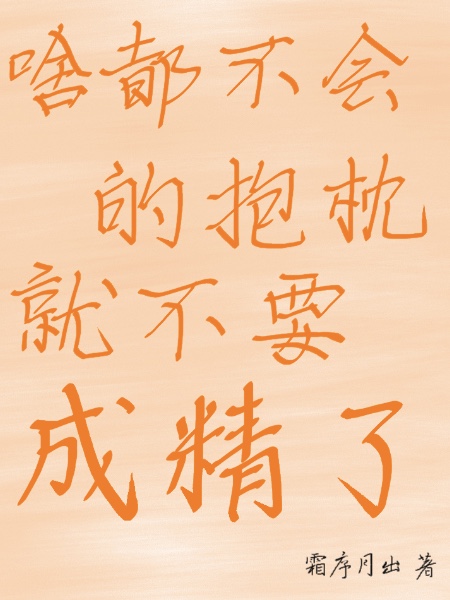 啥都不会
的抱枕
就不要
成精了
霜序月出 著